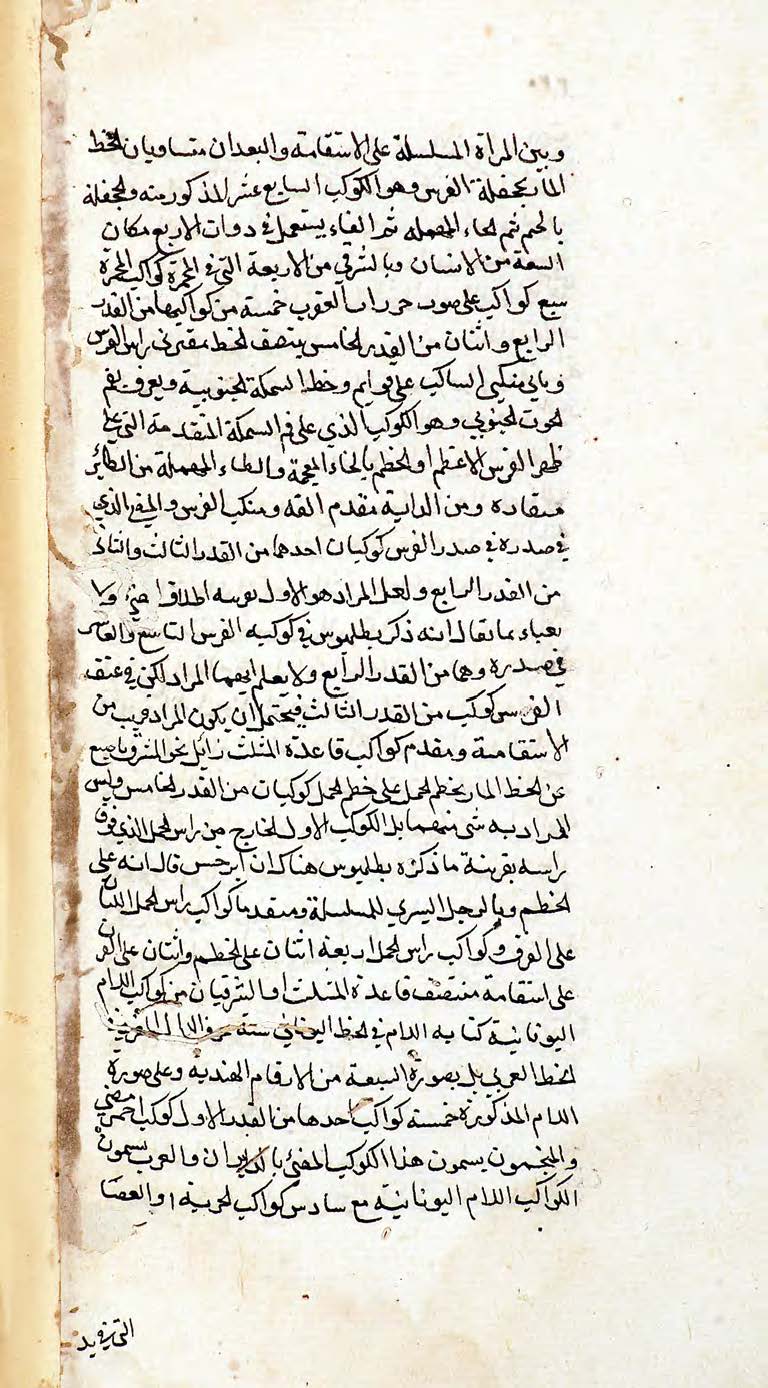 وبين المراة المسلسلة على الاستقامة والبعدان متساويان الخط
المار بجحفلة الفرس وهو الكوكب السابع عشر المذكور منه والجحفلة
بالجيم ثم الحاء المهملة ثم الفاء يستعمل في دوات الاربع مكان
الشفة من الانسان وبالشرقي من الاربعة التي في الجرة كواكب الجرة
سبع كواكب على صورة العقرب خمسة من كواكبها من القدر
الرابع واثنان من القدر الخامس ينصف الخط راس الفرس
منكبي الساكب على قوايم وخط السمكة الجنوبية ويعرف بفم
الحوت الجنوبي وهو الكوكب الذي على فم السمكة المتقدمة التي على
ظهر الفرس الاعظم او الخطم بالخاء المعجمة والطاء المهملة من الطائر
منقاره ومن الدابة مقدم انفه ومنكب الفرس والمضي الذي
في صدره في صدر الفرس كوكبان احدهما من القدر الثالث والثاني
من القدر الرابع ولعل المراد هو الاول ولا
يعباء بما يقال انه ذكر بطلميوس في كوكبه الفرس التاسع والعاشر
في صدره وهما من القدر الرابع ولا يعلم ايهما المراد لكن في عنق
الفرس كوكب من القدر الثالث فيحتمل ان يكون المراد قريب من
الاستقامة ومقدم كواكب قاعدة المثلث زائل نحو المشرق باصبع
عن الخط المار بخطم الحمل على خطم الحمل كوكبان من القدر الخامس وليس
المراد به شي منهما بل الكوكب الاول الخارج من راس الحمل الذي فوق
راسه بقرينة ما ذكره بطلميوس هناك ان ابرخس قال انه على
الخطم وبالرجل اليسري للمسلسلة ومتقدما كواكب راس الحمل اللتان
على القرن وكواكب راس الحمل اربعة اثنان على الخطم واثنان على القرن
على استقامة منتصف قاعدة المثلث او الشرقيان من كواكب اللام
اليونانية كتابه اللام في الخط اليوناني
الخط العربي بل بصورة السبعة من الارقام الهندية وعلى صورة
اللام المذكورة خمسة كواكب احدها من القدر الاول كوكب احمر مضي
والمنجمون يسمون هذا الكوكب المضئ بالدبران والعرب يسمون
الكواكب اللام اليونانية مع سادس كواكب والعصا
التي في يد